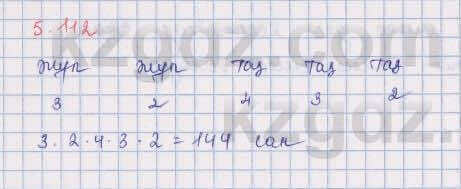 5.112
жұп жұп тақ тақ тақ
3 2 4 3 2
3 · 2 · 4 · 3 · 2 = 144 сан
kzgaz.com
kzgaz.